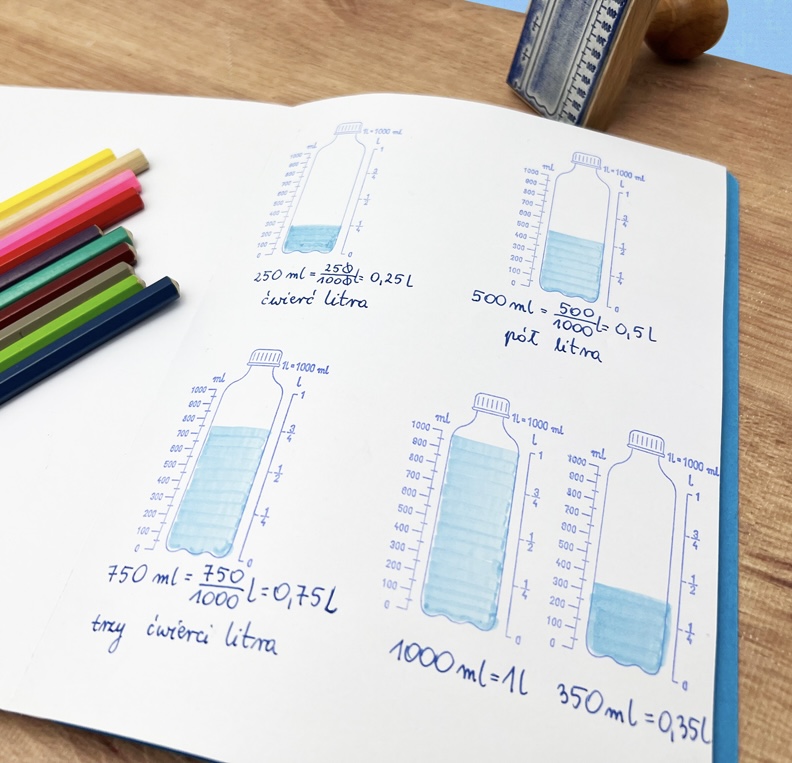 1L=1000 ml
ml
L
1000
900
800
700
600
500
400
300
200
100
0
1
3/4
1/2
1/4
0
250 ml = 250/1000 l = 0,25l
ćwierć litra
1L=1000 ml
ml
L
1000
900
800
700
600
500
400
300
200
100
0
1
3/4
1/2
1/4
0
500 ml = 500/1000 l = 0,5l
pół litra
1L=1000 ml
ml
L
1000
900
800
700
600
500
400
300
200
100
0
1
3/4
1/2
1/4
0
750 ml = 750/1000 l = 0,75l
trzy ćwierci litra
1L=1000 ml
ml
L
1000
900
800
700
600
500
400
300
200
100
0
1
3/4
1/2
1/4
0
1000 ml = 1l
1L=1000 ml
ml
L
1000
900
800
700
600
500
400
300
200
100
0
1
3/4
1/2
1/4
0
350 ml = 0,35l